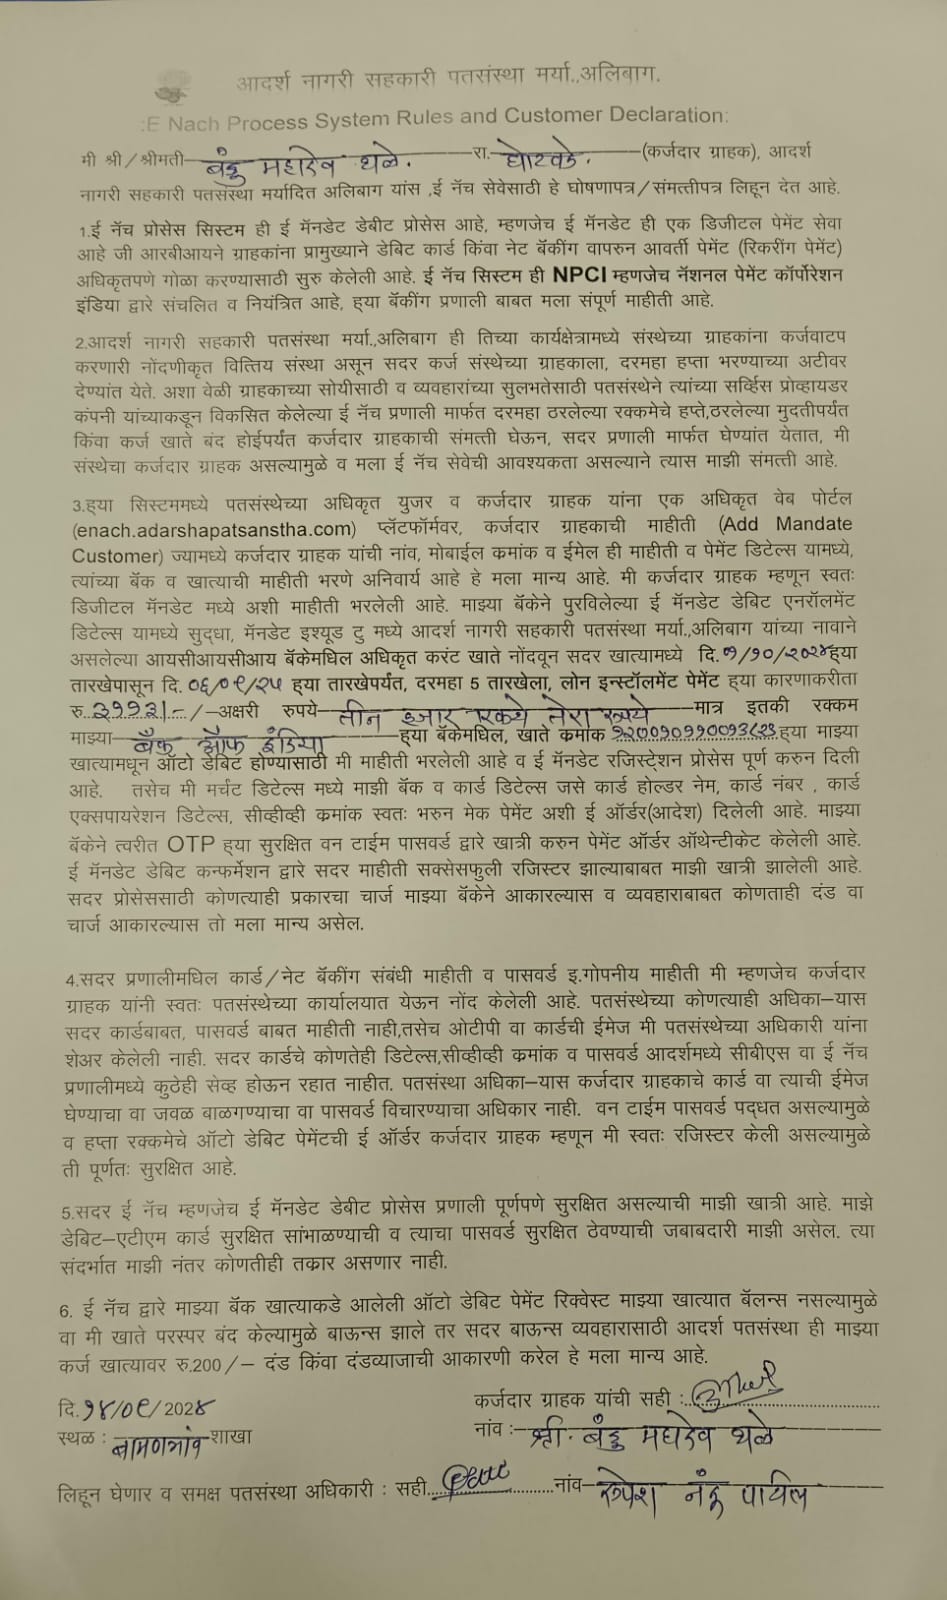 आदर्श नागरी सहकारी पतसंस्था मर्या.,अलिबाग.
:E Nach Process System Rules and Customer Declaration:
मी श्री/श्रीमती बंडु महादेव थळे. रा. घोटवडे. (कर्जदार ग्राहक), आदर्श
नागरी सहकारी पतसंस्था मर्यादित अलिबाग यांस ,ई नॅच सेवेसाठी हे घोषणापत्र/संमत्तीपत्र लिहून देत आहे.
1.ई नॅच प्रोसेस सिस्टम ही ई मॅनडेट डेबीट प्रोसेस आहे, म्हणजेच ई मॅनडेट ही एक डिजीटल पेमेंट सेवा
आहे जी आरबीआयने ग्राहकांना प्रामुख्याने डेबिट कार्ड किंवा नेट बॅकींग वापरुन आवर्ती पेमेंट (रिकरींग पेमेंट)
अधिकृतपणे गोळा करण्यासाठी सुरु केलेली आहे. ई नॅच सिस्टम ही NPCI म्हणजेच नॅशनल पेमेंट कॉर्पोरेशन
इंडिया द्वारे संचलित व नियंत्रित आहे, ह्या बॅकींग प्रणाली बाबत मला संपूर्ण माहीती आहे.
2.आदर्श नागरी सहकारी पतसंस्था मर्या.,अलिबाग ही तिच्या कार्यक्षेत्रामध्ये संस्थेच्या ग्राहकांना कर्जवाटप
करणारी नोंदणीकृत वित्तिय संस्था असून सदर कर्ज संस्थेच्या ग्राहकाला, दरमहा हप्ता भरण्याच्या अटीवर
देण्यांत येते. अशा वेळी ग्राहकाच्या सोयीसाठी व व्यवहारांच्या सुलभतेसाठी पतसंस्थेने त्यांच्या सर्व्हिस प्रोव्हायडर
कंपनी यांच्याकडून विकसित केलेल्या ई नॅच प्रणाली मार्फत दरमहा ठरलेल्या रक्कमेचे हप्ते,ठरलेल्या मुदतीपर्यंत
किंवा कर्ज खाते बंद होईपर्यंत कर्जदार ग्राहकाची संमत्ती घेऊन, सदर प्रणाली मार्फत घेण्यांत येतात, मी
संस्थेचा कर्जदार ग्राहक असल्यामुळे व मला ई नॅच सेवेची आवश्यकता असल्याने त्यास माझी संमत्ती आहे.
3.ह्या सिस्टममध्ये पतसंस्थेच्या अधिकृत युजर व कर्जदार ग्राहक यांना एक अधिकृत वेब पोर्टल
(enach.adarshapatsanstha.com) प्लॅटफॉर्मवर, कर्जदार ग्राहकाची माहीती (Add Mandate
Customer) ज्यामध्ये कर्जदार ग्राहक यांची नांव, मोबाईल कमांक व ईमेल ही माहीती व पेमेंट डिटेल्स यामध्ये,
त्यांच्या बॅक व खात्याची माहीती भरणे अनिवार्य आहे हे मला मान्य आहे. मी कर्जदार ग्राहक म्हणून स्वतः
डिजीटल मॅनडेट मध्ये अशी माहीती भरलेली आहे. माझ्या बॅकेने पुरविलेल्या ई मॅनडेट डेबिट एनरॉलमेंट
डिटेल्स यामध्ये सुद्धा, मॅनडेट इश्यूड टु मध्ये आदर्श नागरी सहकारी पतसंस्था मर्या.,अलिबाग यांच्या नावाने
असलेल्या आयसीआयसीआय बॅकेमधिल अधिकृत करंट खाते नोंदवून सदर खात्यामध्ये दि. ७/१०/२०२४ ह्या
तारखेपासून दि. ०६/०९/२५ ह्या तारखेपर्यंत, दरमहा 5 तारखेला, लोन इन्स्टॉलमेंट पेमेंट ह्या कारणाकरीता
रु ३११३/- /-अक्षरी रुपये तीन हजार एकशे तेरा रुपये मात्र इतकी रक्कम
माझ्या बँक ऑफ इंडिया ह्या बॅकेमधिल, खाते कमांक ह्या माझ्या
खात्यामधून ऑटो डेबिट होण्यासाठी मी माहीती भरलेली आहे व ई मॅनडेट रजिस्ट्रेशन प्रोसेस पूर्ण करुन दिली
आहे. तसेच मी मर्चंट डिटेल्स मध्ये माझी बॅक व कार्ड डिटेल्स जसे कार्ड होल्डर नेम, कार्ड नंबर , कार्ड
एक्सपायरेशन डिटेल्स, सीव्हीव्ही क्रमांक स्वतः भरुन मेक पेमेंट अशी ई ऑर्डर(आदेश) दिलेली आहे. माझ्या
बॅकेने त्वरीत OTP ह्या सुरक्षित वन टाईम पासवर्ड द्वारे खात्री करुन पेमेंट ऑर्डर ऑथेन्टीकेट केलेली आहे.
ई मॅनडेट डेबिट कन्फर्मेशन द्वारे सदर माहीती सक्सेसफुली रजिस्टर झाल्याबाबत माझी खात्री झालेली आहे.
सदर प्रोसेससाठी कोणत्याही प्रकारचा चार्ज माझ्या बॅकेने आकारल्यास व व्यवहाराबाबत कोणताही दंड वा
चार्ज आकारल्यास तो मला मान्य असेल.
4.सदर प्रणालीमधिल कार्ड/नेट बॅकींग संबंधी माहीती व पासवर्ड इ.गोपनीय माहीती मी म्हणजेच कर्जदार
ग्राहक यांनी स्वतः पतसंस्थेच्या कार्यालयात येऊन नोंद केलेली आहे. पतसंस्थेच्या कोणत्याही अधिका-यास
सदर कार्डबाबत, पासवर्ड बाबत माहीती नाही,तसेच ओटीपी वा कार्डची ईमेज मी पतसंस्थेच्या अधिकारी यांना
शेअर केलेली नाही. सदर कार्डचे कोणतेही डिटेल्स,सीव्हीव्ही क्रमांक व पासवर्ड आदर्शमध्ये सीबीएस वा ई नॅच
प्रणालीमध्ये कुठेही सेव्ह होऊन रहात नाहीत. पतसंस्था अधिका-यास कर्जदार ग्राहकाचे कार्ड वा त्याची ईमेज
घेण्याचा वा जवळ बाळगण्याचा वा पासवर्ड विचारण्याचा अधिकार नाही. वन टाईम पासवर्ड पद्धत असल्यामुळे
व हप्ता रक्कमेचे ऑटो डेबिट पेमेंटची ई ऑर्डर कर्जदार ग्राहक म्हणून मी स्वतः रजिस्टर केली असल्यामुळे
ती पूर्णतः सुरक्षित आहे.
5.सदर ई नॅच म्हणजेच ई मॅनडेट डेबीट प्रोसेस प्रणाली पूर्णपणे सुरक्षित असल्याची माझी खात्री आहे. माझे
डेबिट-एटीएम कार्ड सुरक्षित सांभाळण्याची व त्याचा पासवर्ड सुरक्षित ठेवण्याची जबाबदारी माझी असेल. त्या
संदर्भात माझी नंतर कोणतीही तक्रार असणार नाही.
6. ई नॅच द्वारे माझ्या बॅक खात्याकडे आलेली ऑटो डेबिट पेमेंट रिक्वेस्ट माझ्या खात्यात बॅलन्स नसल्यामुळे
वा मी खाते परस्पर बंद केल्यामुळे बाऊन्स झाले तर सदर बाऊन्स व्यवहारासाठी आदर्श पतसंस्था ही माझ्या
कर्ज खात्यावर रु.200/- दंड किंवा दंडव्याजाची आकारणी करेल हे मला मान्य आहे.
दि. १४/०९/2024 कर्जदार ग्राहक यांची सही :
स्थळ : बामणगांव शाखा नांव : श्री. बंडु महादेव थळे
लिहून घेणार व समक्ष पतसंस्था अधिकारी : सही नांव रुपेश नंदू पाटील